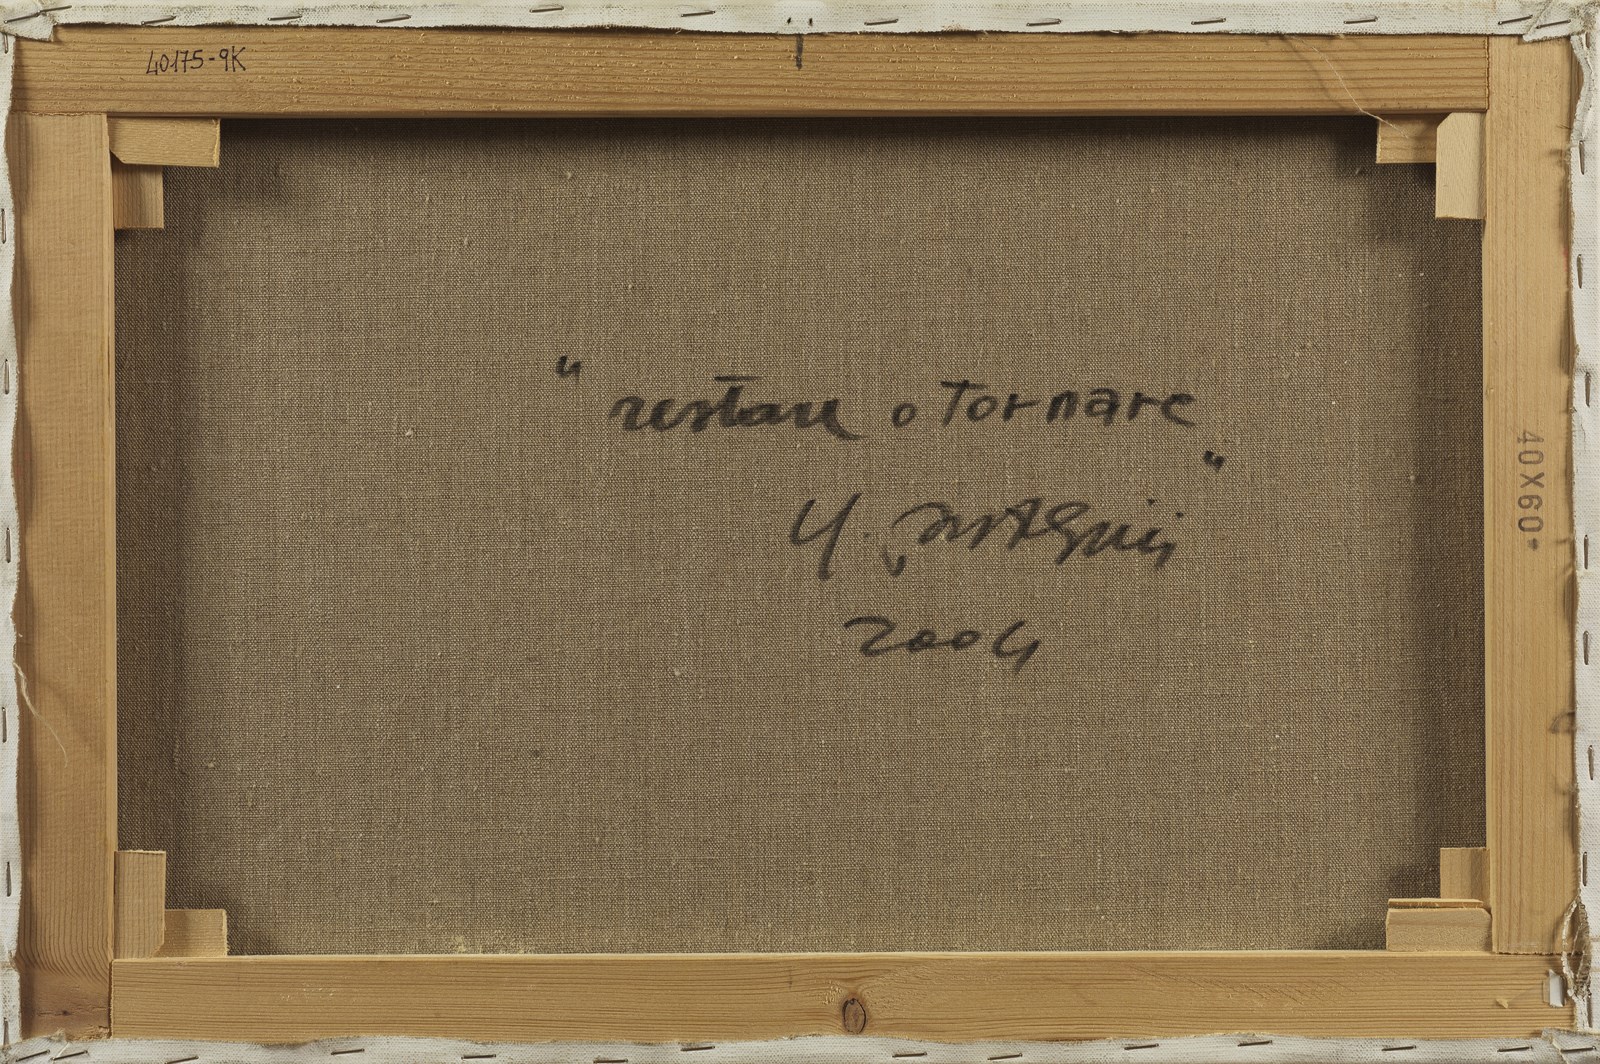 40175-9K
" restare o tornare "
2004
40X60*